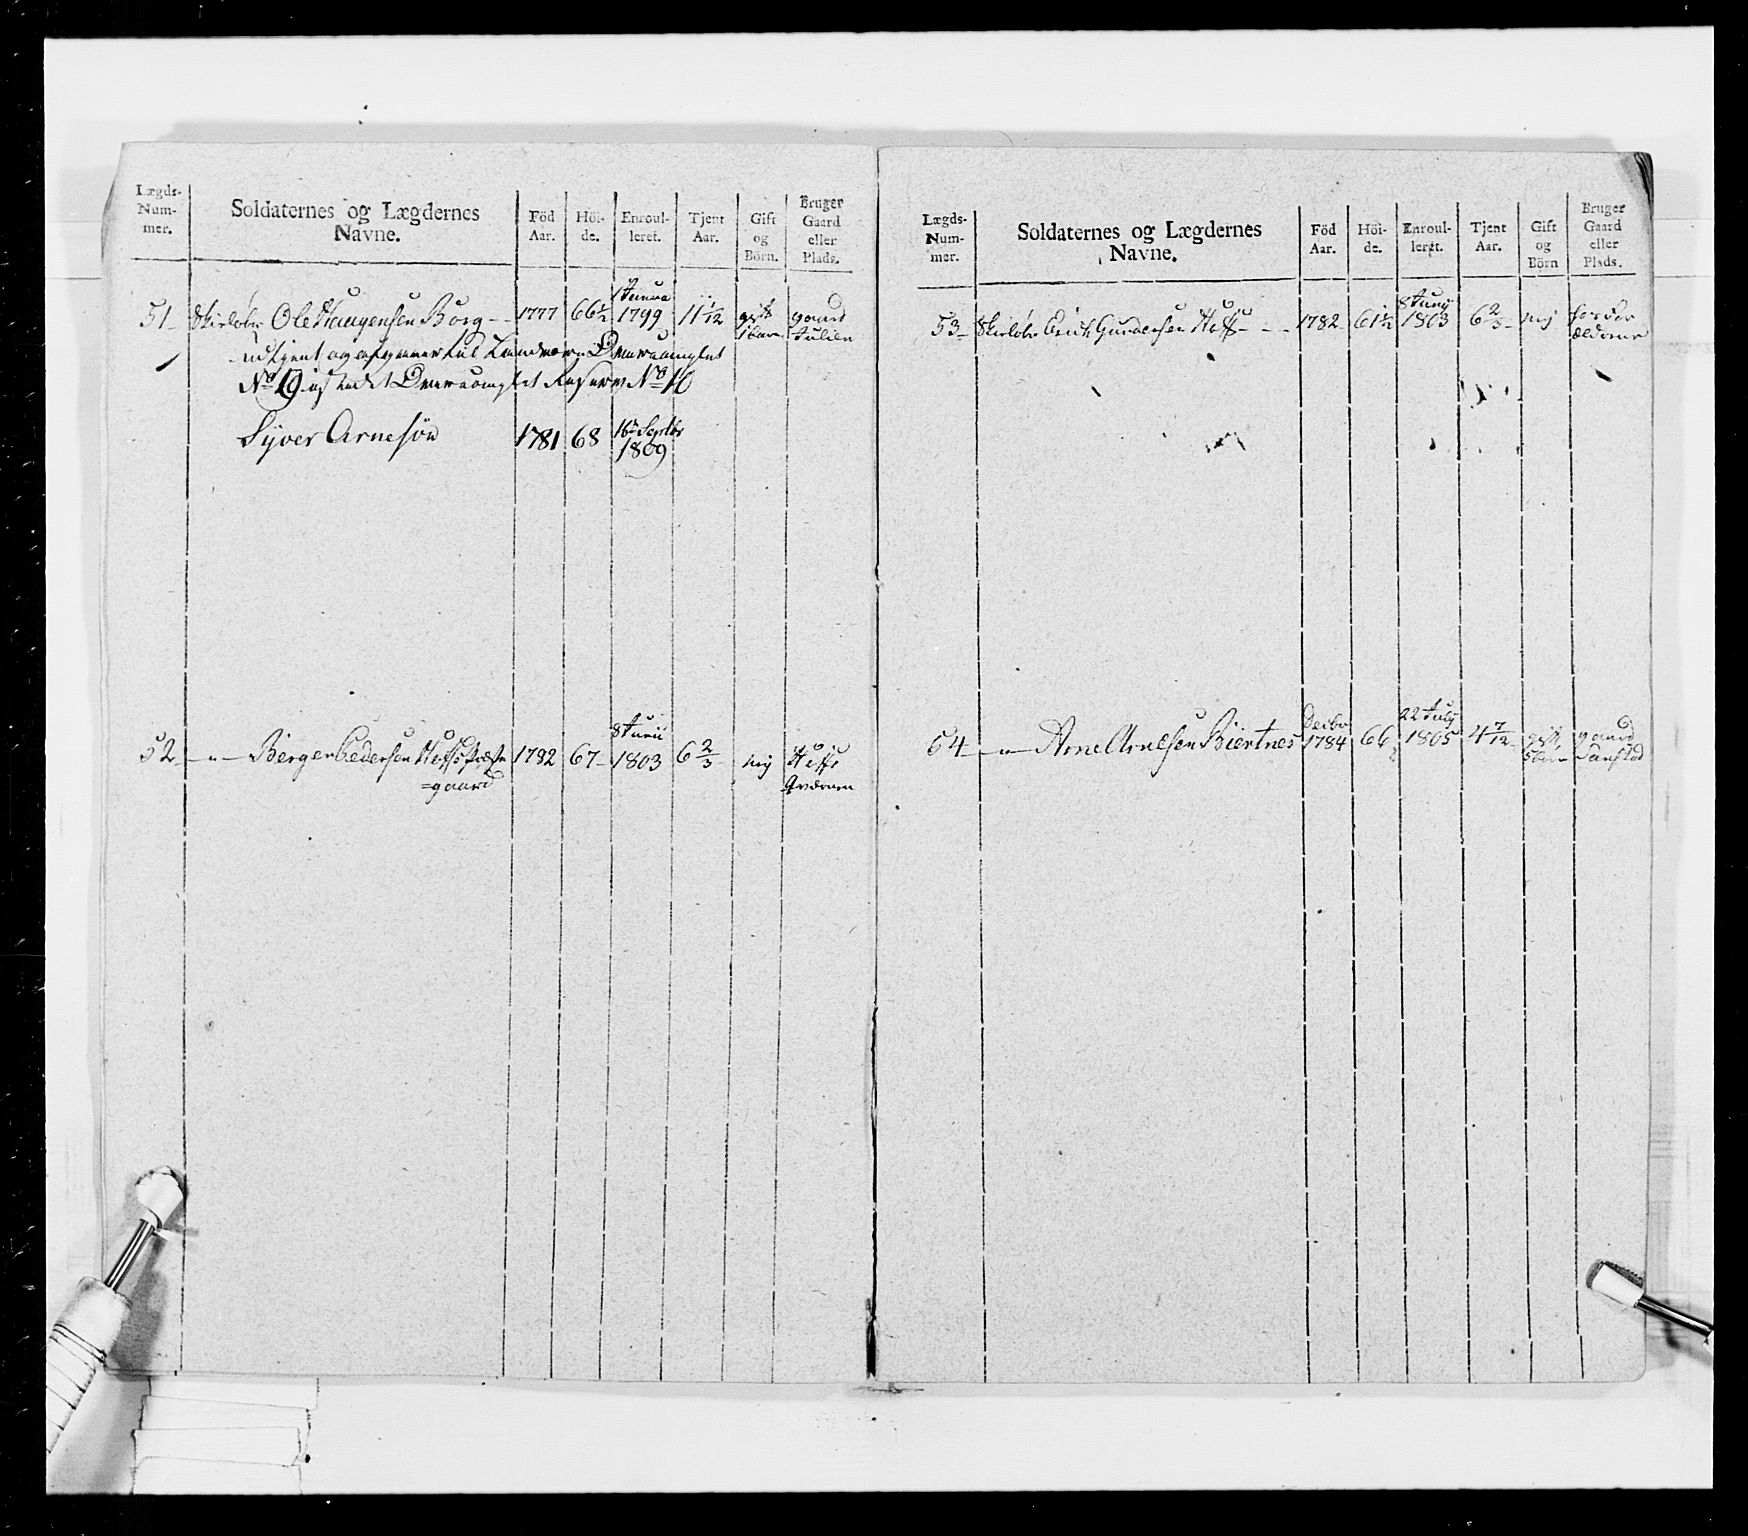 Lægds-
Num-
mer.
Soldaternes og Lægdernes
Navne.
Föd
Aar.
Höi-
de.
Enroul-
leret.
Tjent
Aar.
Gift
og
Börn.
Bruger
Gaard
eller
Plads.
51 Skieløbr Ole Haugensen Borg 1777 66½ 1 Janua 1799 11 1/12 gift 1 barn gaard
udtjent og afgaaer til Landværn
No 19 No 10
Syver Arnesön 1781 68 16de Septbr 1809
52 Berger Pedersen Hoffs Præste
=gaard 1782 67 8 Junii 1803 6 2/3 nej Hoffs
Lægds-
Num-
mer.
Soldaternes og Lægdernes
Navne.
Föd
Aar.
Höi-
de.
Enroul-
leret.
Tjent
Aar.
Gift
og
Börn
Bruger
Gaard
eller
Plads.
53 Skieløbr Erich Gundersen Hoff 1782 61½ 8 Junij 1803 6 2/3 nej
54 Arne Arnesen Biertnes Decbr 1784 66 22 July 1805 4 7/12 gift gaard